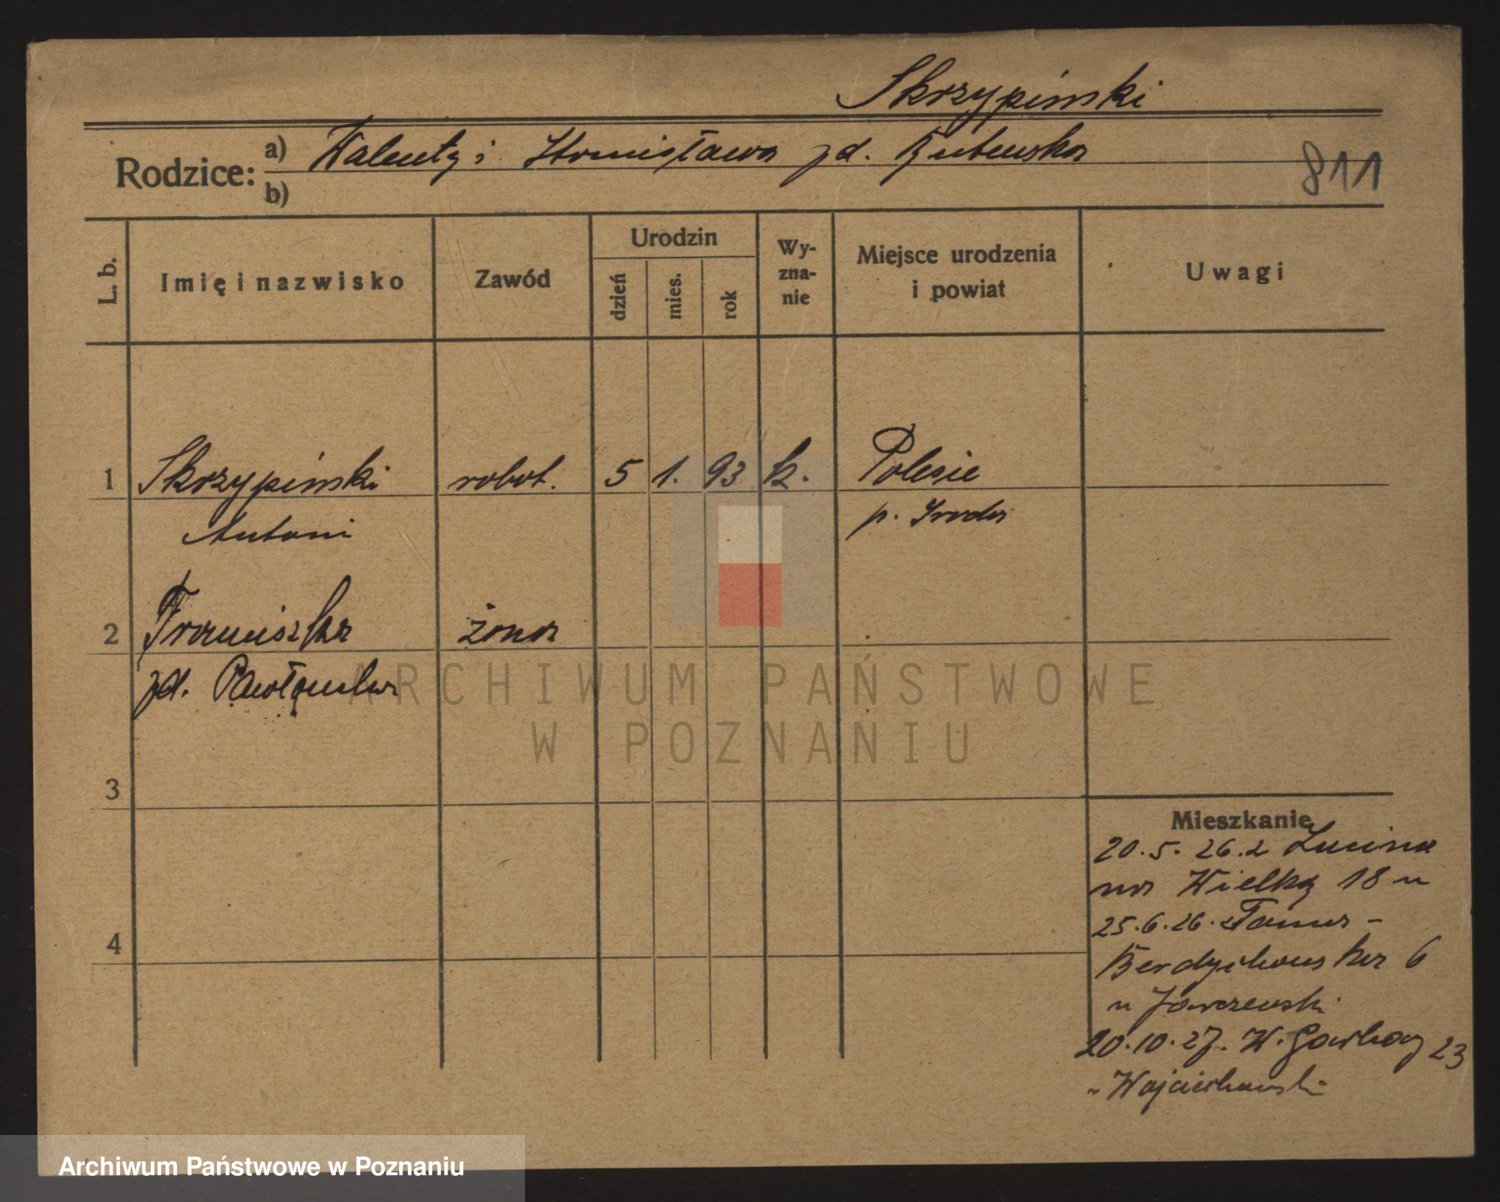 Skrzypiński
Rodzice: a) Walenty i Stanisława zd.
b)
811
L. b.
Imię i nazwisko
Zawód
Urodzin
dzień
mies.
rok
Wy-
zna-
nie
Miejsce urodzenia
i powiat
Uwagi
1 Skrzypiński robot. 5 1. 93 k. Polesie
Antoni p. Środa
2 Franciszka żona
zd.
3
4
Mieszkanie
20.5.26. z
na Wielką 18 u
25.6.26. z Tama-
Berdychowska 6
u Jarczewski
20.10.27. W. Garbary 23
u Wojciechowski
ARCHIWUM PAŃSTWOWE
W POZNANIU
Archiwum Państwowe w Poznaniu